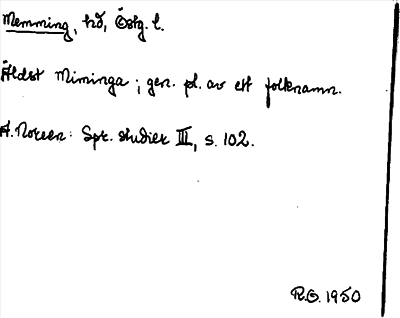 Memming, hd, Östg. l.
Äldst Miminga; gen. pl. av ett folknamn.
A. Noreen: Spr. studier III, s. 102.
R.G. 1950